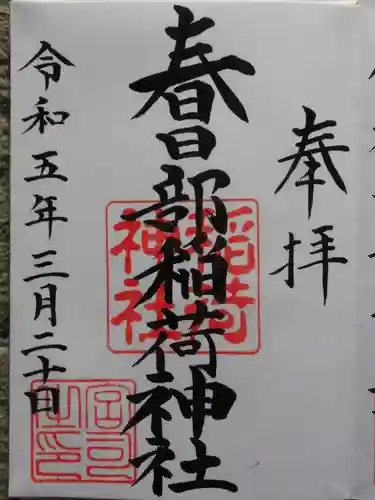 奉拝
春日部稲荷神社
令和五年三月二十日
稲荷
神社
宮司
之印